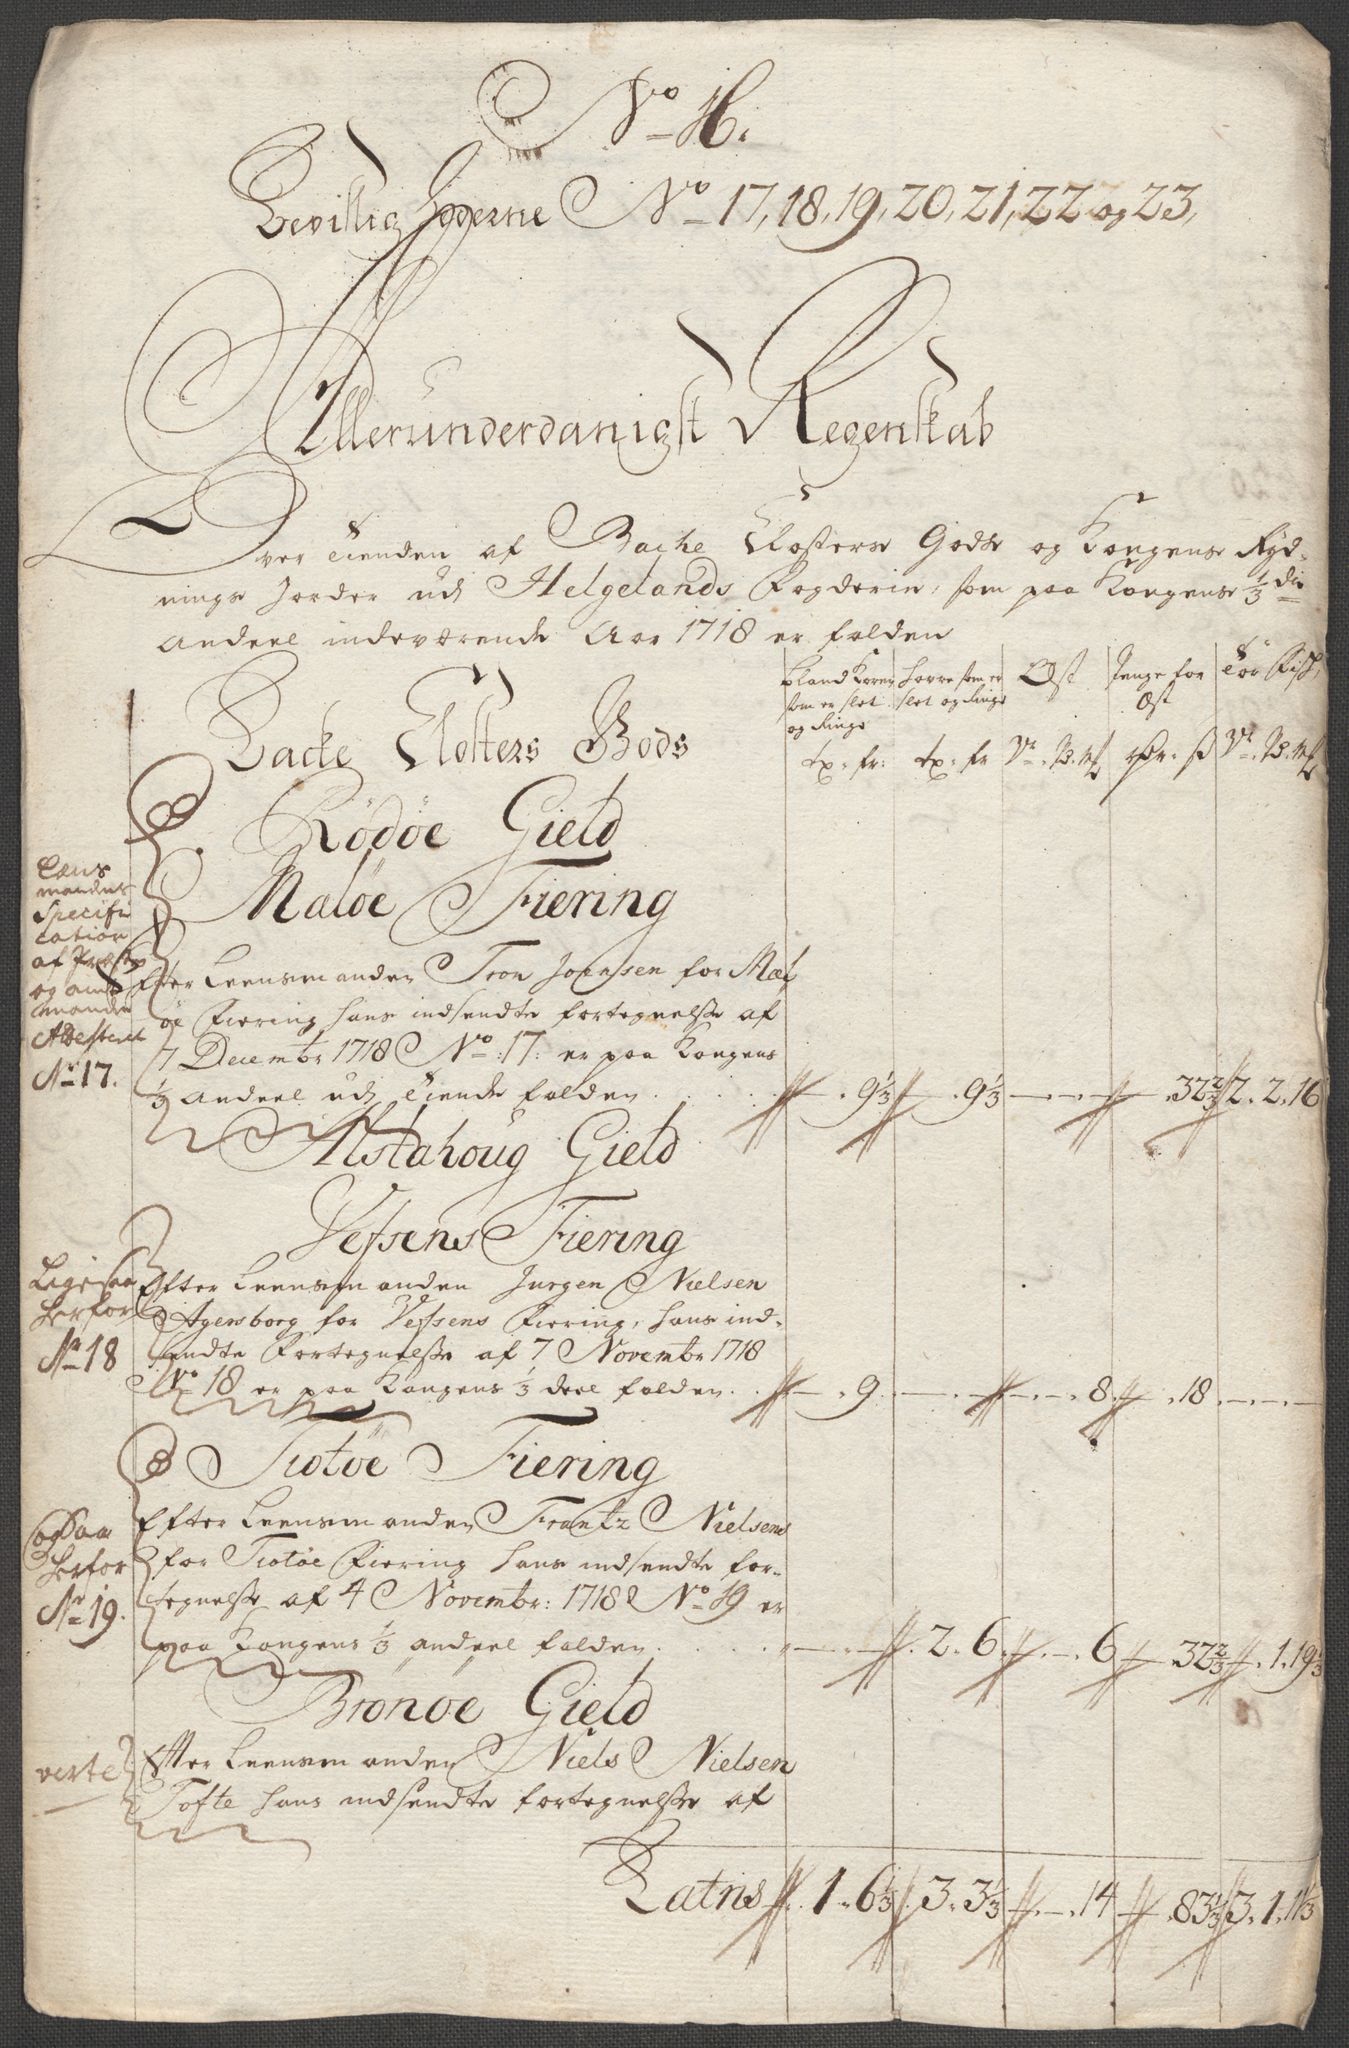 No H.
Bevillig Jgerne No 17, 18, 19, 20, 21, 22 og 23,
Allerunderdanigst Regenskab
Over Tienden af Bache Closters Gods og Kongens Ryd-
nings Jorder udj Helgelands Fogderie, som paa Kongens 1/3 die
andeel indeværende Aar 1718 er falden
Bland Korn som er slet og Ringe
Horre som er slet og Ringe
Ost
Penge for Ost
Tör Fisk
Backe Closters Gods
tx. fr: tx: fr Vr. P. mk Rdr. ß Vr. P. mk
Rödöe Gield
Maløe Fiering
Læns
mandens
Specifi
cation
af Præsten
og
manden
Attesteret
No 17.
Efter Leensmanden Tron Joensen for Mel
øe Fiering hans indsendte fortegnelsse af
7 Decembr 1718 No: 17: er paa Kongens
1/3 andeel udj Tiende falden . . . 9 1/3 . 9 1/3 . 32 2/3 2. 2. 16
Alstahoug Gield
Vefsens Fiering
Ligesaa
herfor
No 18
Efter Leensmanden Jurgen Nielsen
Agersborg for Vefsens Fiering, hans ind-
sendte Fortegnelsse af 7 Novembr 1718
No 18 er paa Kongens 1/3 deel falden . . 9 . 8 . 18
Tiotøe Fiering
ogsaa
herfor
No 19.
Efter Leensmanden Frantz Nielsens
for Tiotøe Fiering hans indsendte for-
tegnelsse af 4 Novembr: 1718 No 19 er
paa Kongens 1/3 andeel falden . . . 2. 6 . 6 . 32 2/3 . 1. 19 1/3
Brønøe Gield
verte
Efter Leensmanden Niels Nielsen
Tofte hans indsendte fortegnelsse af
Latus . 1. 6 1/3 . 3. 3 1/3 . 14 . 83 1/3 3. 1. 11 1/3